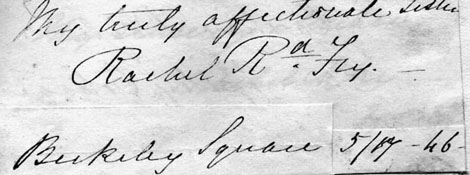 Thy truly affectionate sister
Rachel Rd. Fry. —
Berkeley Square 5/17 - 46 -